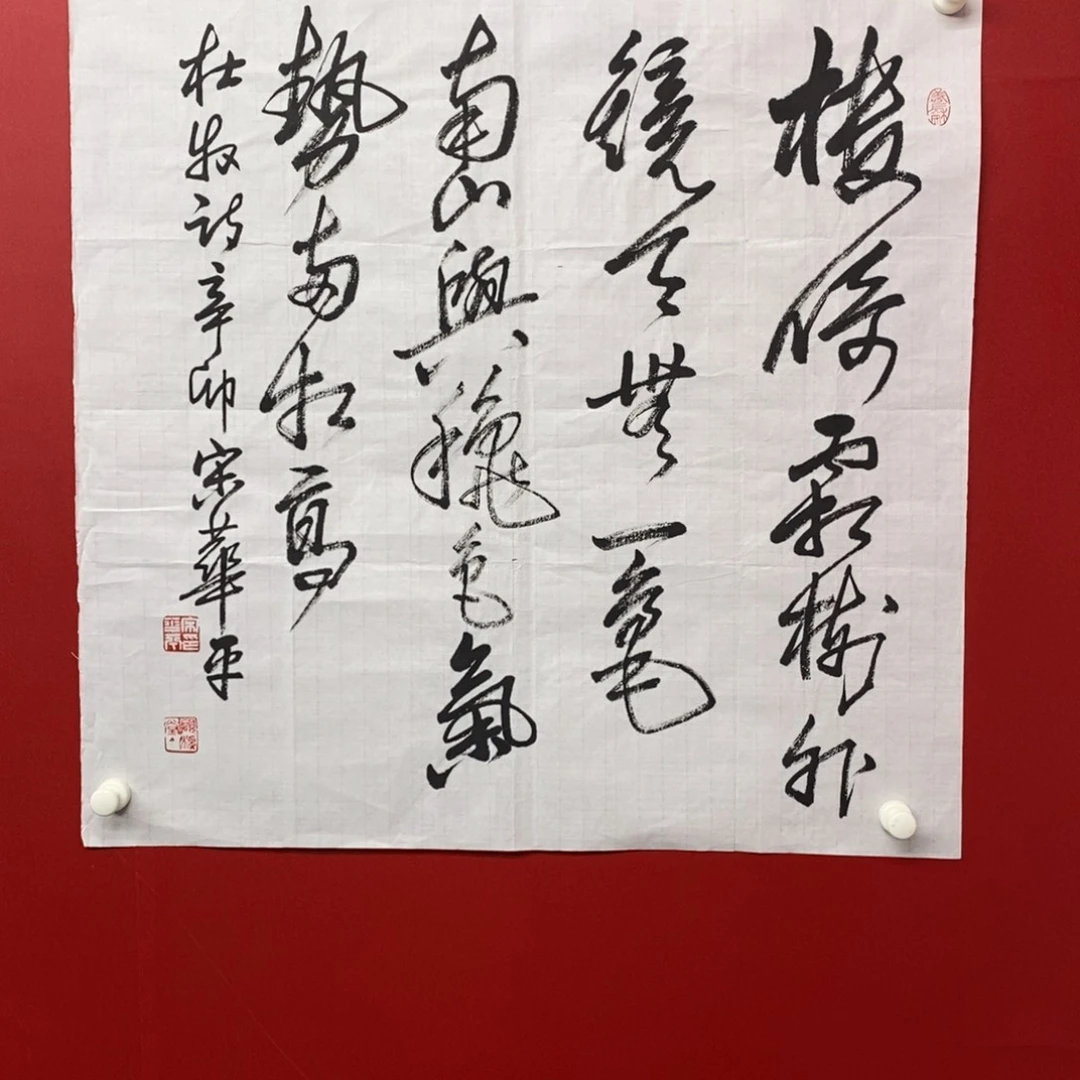 樓倚霜樹外
鏡天無一毫
南山與穐色氣
勢兩相高
杜牧詩辛卯宋華平